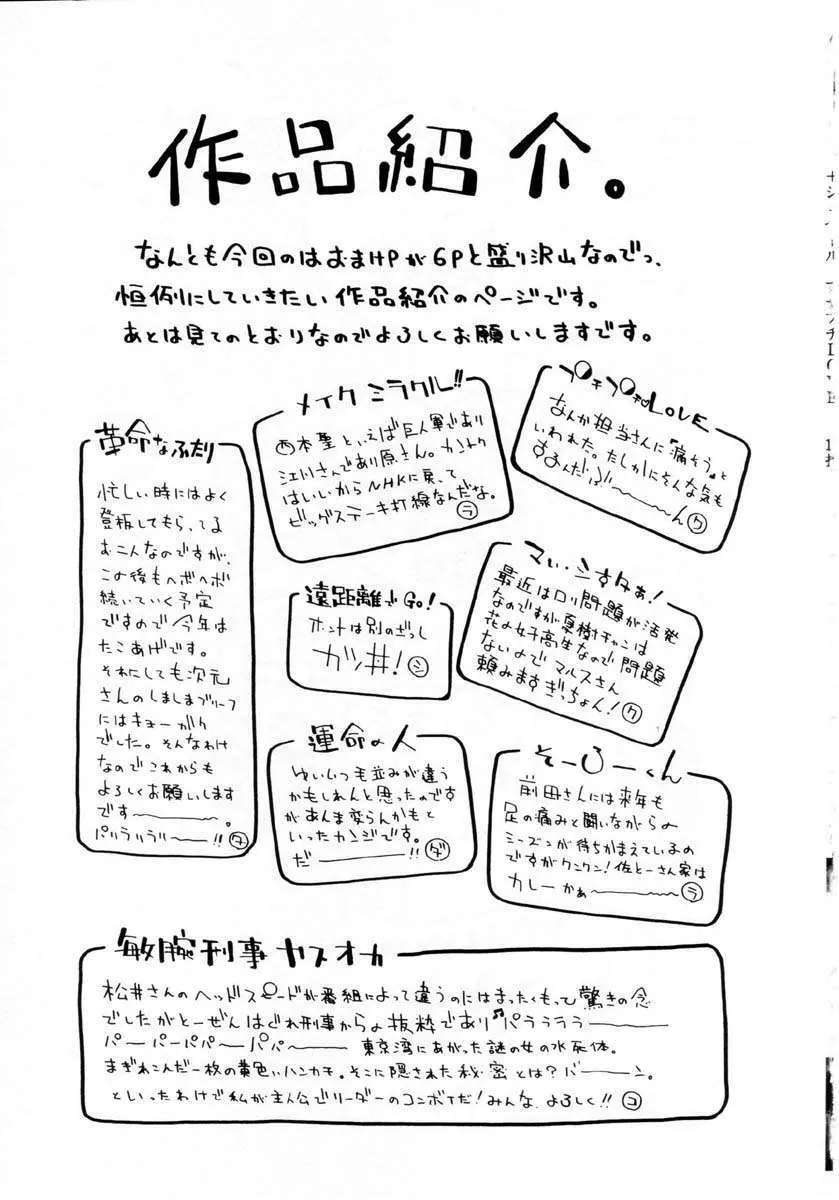 作品紹介。
なんとも今回のはおまけPが6Pと盛り沢山なのでっ、
恒例にしていきたい作品紹介のページです。
あとは見てのとおりなのでよろしくお願いしますです。
革命なふたり
忙しい時にはよく
登板してもらってる
おこんなのですが、
この後もヘボヘボ
続いていく予定
ですので今年は
たこあげです。
それにしても次元
さんのしましまブリーフ
にはキョーがく
でした。そんなわけ
なのでこれからも
よろしくお願いします
です――――。
パリラリラリ――――!! タ
メイクミラクル!!
西本聖といえば巨人軍であり
江川さんであり原さん。カントク
はいいからNHKに戻って
ビッグステーキ打線なんだな。
ラ
LOVE
なんか担当さんに「痛そう」と
いわれた。たしかにそんな気も
するんだぶ〜〜〜ん ク
遠距離でGO!
ホントは別のざっし
ガッ丼! シ
まい・シすタぁ!
最近はロリ問題が活発
なのですが夏樹チャンは
花の女子高生なので問題
ないのでマルスさん
頼みますぎっちょん! ク
運命の人
ゆいいつ毛並みが違う
かもしれんと思ったのです
があんま変らんかもと
いったカンジです。
だ――――!! ダ
そーろーくん
前田さんには来年も
足の痛みと闘いながらの
シーズンが待ちかまえているの
ですがクンクン!佐とーさん家は
カレーかぁ〜〜〜 ラ
敏腕刑事ヤスオカ
松井さんのヘッドスピードが番組によって違うのにはまったくもって驚きの念
でしたがとーぜんはぐれ刑事からの抜粋であり♫パララララ――――
パーパーパパーパパ――――東京湾にあがった謎の女の水死体。
まぎれこんだ一枚の黄色いハンカチ。そこに隠された秘密とは?バーーン。
といったわけで私が主人公でリーダーのコンボイだ!みんな、よろしく!! コ